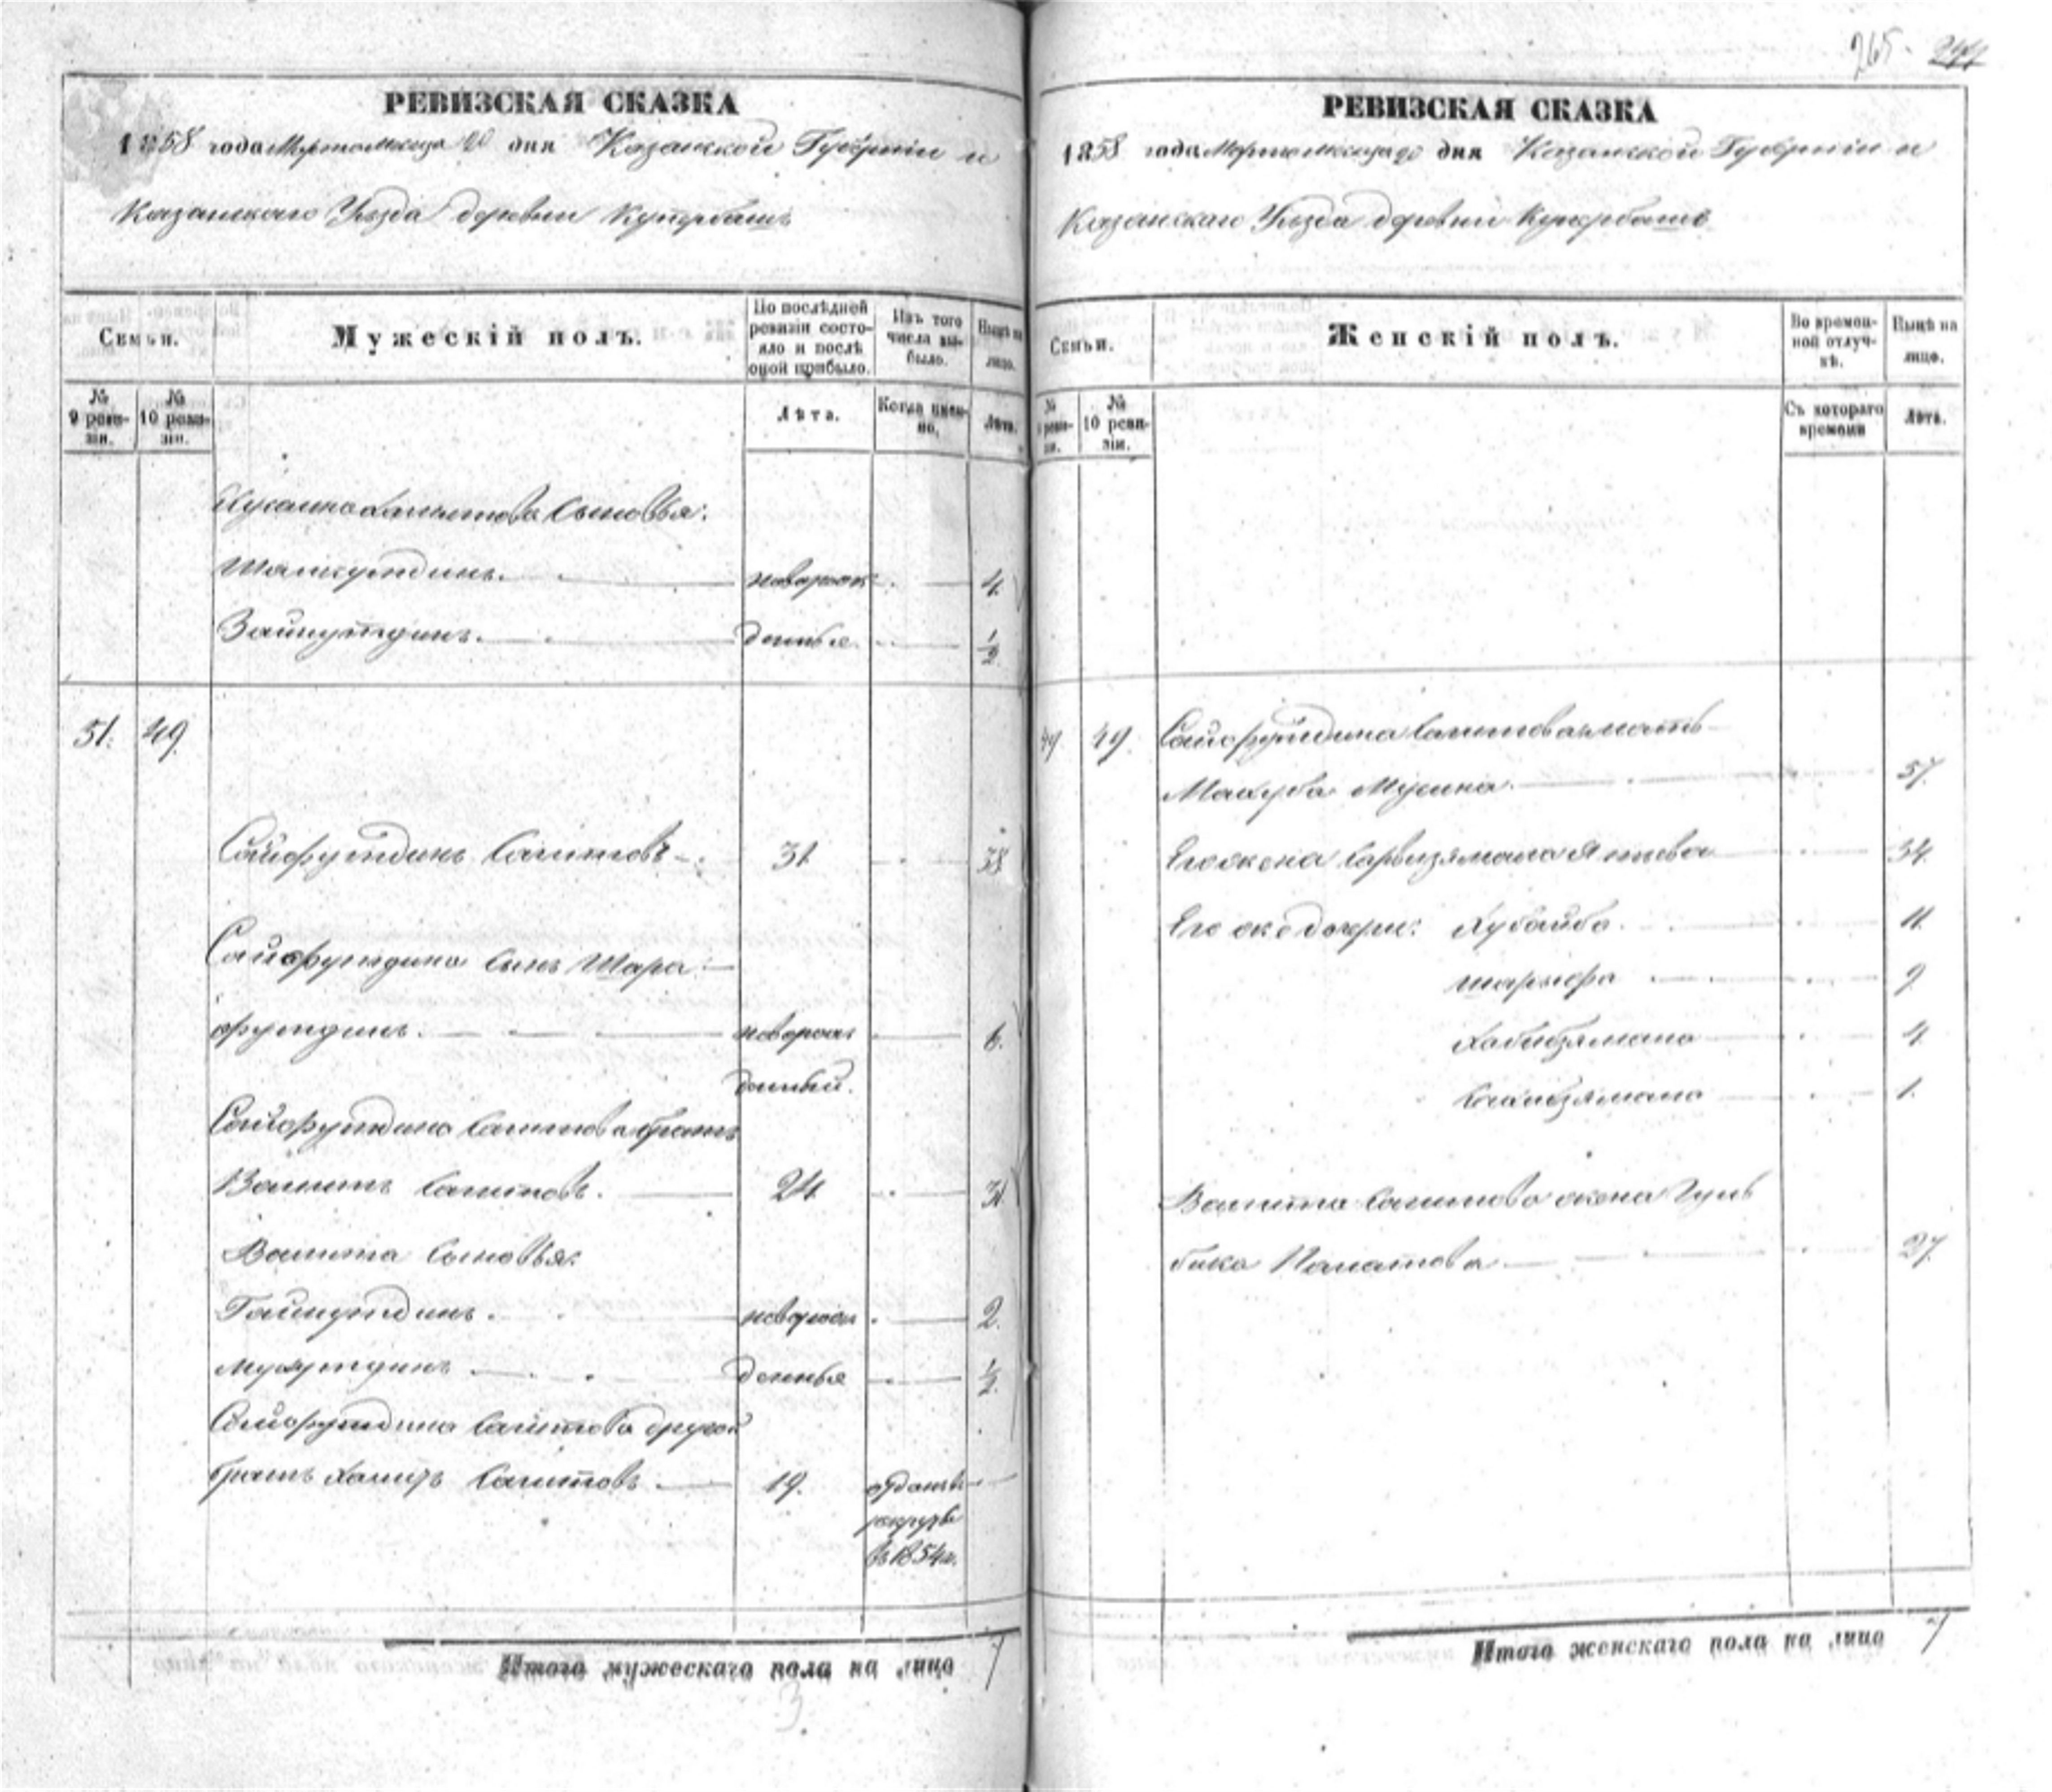 265.
РЕВИЗСКАЯ СКАЗКА
1858 года Марта месяца 20 дня Казанской Губерніи и
Казанскаго Уѣзда деревни Купербашъ
Семьи.
Мужескій полъ.
По послѣдней ревизіи состояло и послѣ оной прибыло.
Изъ того числа выбыло.
Нынѣ на лицо.
№ 9 ревизіи.
№ 10 ревизіи.
Лѣта.
Когда именно.
Лѣта.
сыновья:
новорож 4
Зайнутдинъ. денныя 1/2
51. 49.
Сайфутдинъ Сагитовъ 31 38
Сайфутдина сынъ Шара
футдинъ. новорож 6.
данный.
Сайфутдина Сагитова братъ
Вагитъ Сагитовъ. 24 31
Вагита сыновья:
новорож 2.
денныя 1/2
Сайфутдина Сагитова другой
братъ Сагитовъ 19. отданъ въ
рекруты
въ 1854 г.
Итого мужескаго пола на лицо 7
3
РЕВИЗСКАЯ СКАЗКА
1858 года Марта месяца 20 дня Казанской Губерніи и
Казанскаго Уѣзда деревни Купербашъ
Семьи.
Женскій полъ.
Во временной отлучкѣ.
Нынѣ на лицо.
№ 9 ревизіи.
№ 10 ревизіи.
Съ котораго времени
Лѣта.
49 49. Сайфутдина Сагитова мать
Махуба Мусина. 57.
Его жена 34.
Его же дочери: Хубайба. 11.
Шарифа 9
Хабибзямала 4
1.
Вагита Сагитова жена Гуль
бика 27.
Итого женскаго пола на лицо 7